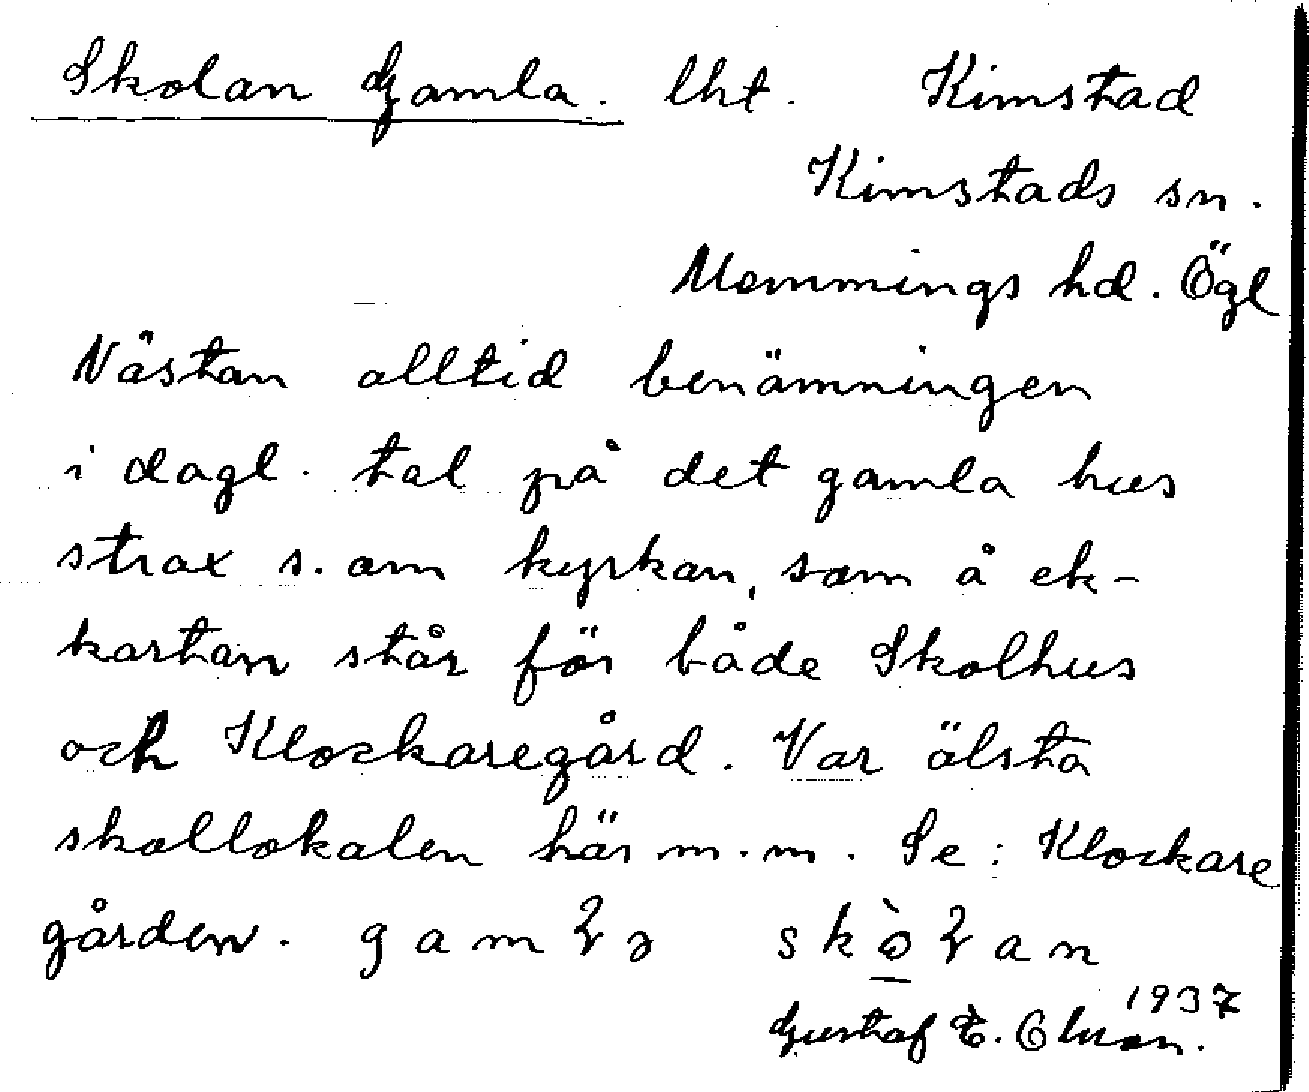 Skolan Gamla. lht. Kimstad
Kimstads sn.
Memmings hd. Ögl
Nästan alltid benämningen
i dagl. tal på det gamla hus
strax s. om kyrkan, som å ek-
kartan står för både Skolhus
och Klockaregård. Var älsta
skollokalen här m.m. Se: Klockare
gården. gamla skò̲lan
1937
Gustaf E.